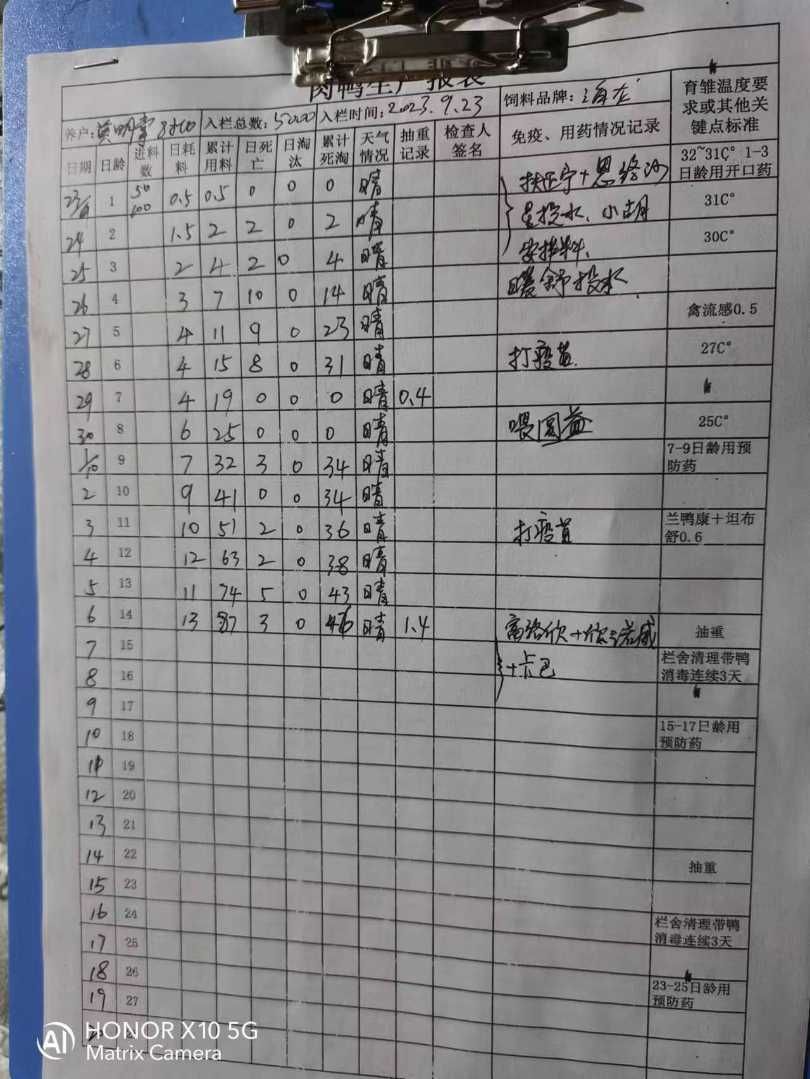 肉鸭生产报表
养户: 入栏总数: 5000 入栏时间: 2023.9.23 饲料品牌: 海龙 育雏温度要求或其他关键点标准
日期 日龄 进料数 日耗料 累计用料 日死亡 日淘汰 累计死淘 天气情况 抽重记录 检查人签名 免疫、用药情况记录
23/9 1 50 100 0.5 0.5 0 0 0 晴 扶正宁+恩络沙 32~31C° 1-3日龄用开口药
24 2 1.5 2 2 0 2 晴 星投水、小胡 31C°
25 3 2 4 2 0 4 晴 安拌料、 30C°
26 4 3 7 10 0 14 晴 暖舒投水
27 5 4 11 9 0 23 晴 禽流感0.5
28 6 4 15 8 0 31 晴 打疫苗. 27C°
29 7 4 19 0 0 0 晴 0.4
30 8 6 25 0 0 0 晴 喂圆益 25C°
1/10 9 7 32 3 0 34 晴 7-9日龄用预防药
2 10 9 41 0 0 34 晴
3 11 10 51 2 0 36 晴 打疫苗 兰鸭康+坦布舒0.6
4 12 12 63 2 0 38 晴
5 13 11 74 5 0 43 晴
6 14 13 87 3 0 46 晴 1.4 抽重
7 15 +卡巴 栏舍清理带鸭消毒连续3天
8 16
9 17
10 18 15-17日龄用预防药
11 19
12 20
13 21
14 22 抽重
15 23
16 24 栏舍清理带鸭消毒连续3天
17 25
18 26
19 27 23-25日龄用预防药
HONOR X10 5G
Matrix Camera